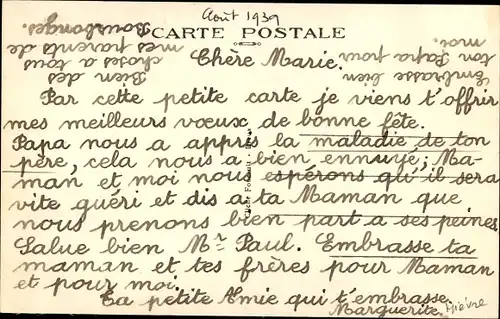 Août 1939
CARTE POSTALE
Chère Marie.
Par cette petite carte je viens t'offrir
mes meilleurs vœux de bonne fête.
Papa nous a appris la maladie de ton
père, cela nous a bien ennuyé; Ma-
man et moi nous espérons qu'il sera
vite guéri et dis a ta Maman que
nous prenons bien part a ses peines
Salue bien Mr Paul. Embrasse ta
maman et tes frères pour Maman
et pour moi.
Ta petite Amie qui t'embrasse.
Marguerite. Mièvre
Embrasse bien
ton Papa pour
moi.
Bien des
choses a tous
mes parents de